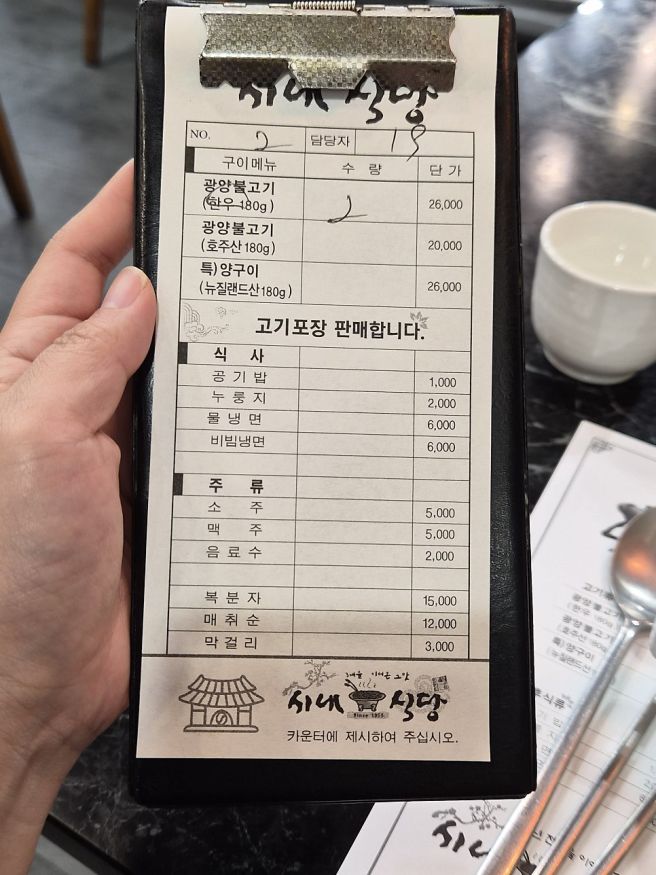 시내 식당
NO. 2 담당자 19
구이메뉴 수 량 단 가
광양불고기
(한우 180g) 2 26,000
광양불고기
(호주산 180g) 20,000
특) 양구이
(뉴질랜드산 180g) 26,000
고기포장 판매합니다.
식 사
공 기 밥 1,000
누 룽 지 2,000
물 냉 면 6,000
비빔냉면 6,000
주 류
소 주 5,000
맥 주 5,000
음 료 수 2,000
복 분 자 15,000
매 취 순 12,000
막 걸 리 3,000
시내 식당
Since 1955
카운터에 제시하여 주십시오.
광양불고
(한우 180g
광양불고
(호주산 180
특) 양구이
(뉴질랜드산
시내